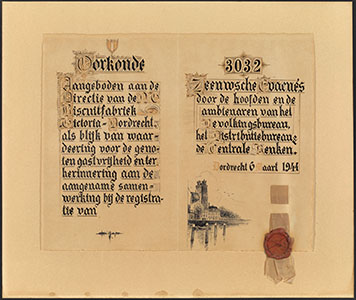 Oorkonde
Aangeboden aan de
Directie van de N.V.
Biscuitfabriek
Victoria - Dordrecht
als blijk van waar=
deering voor de geno=
ten gastvrijheid en ter
herinnering aan de
aangename samen=
werking bij de registra=
tie van
3032
Zeeuwsche Evacués
door de hoofden en de
ambtenaren van het
Bevolkingsbureau,
het Distributiebureau en
de Centrale Keuken.
Dordrecht 6 Maart 1944